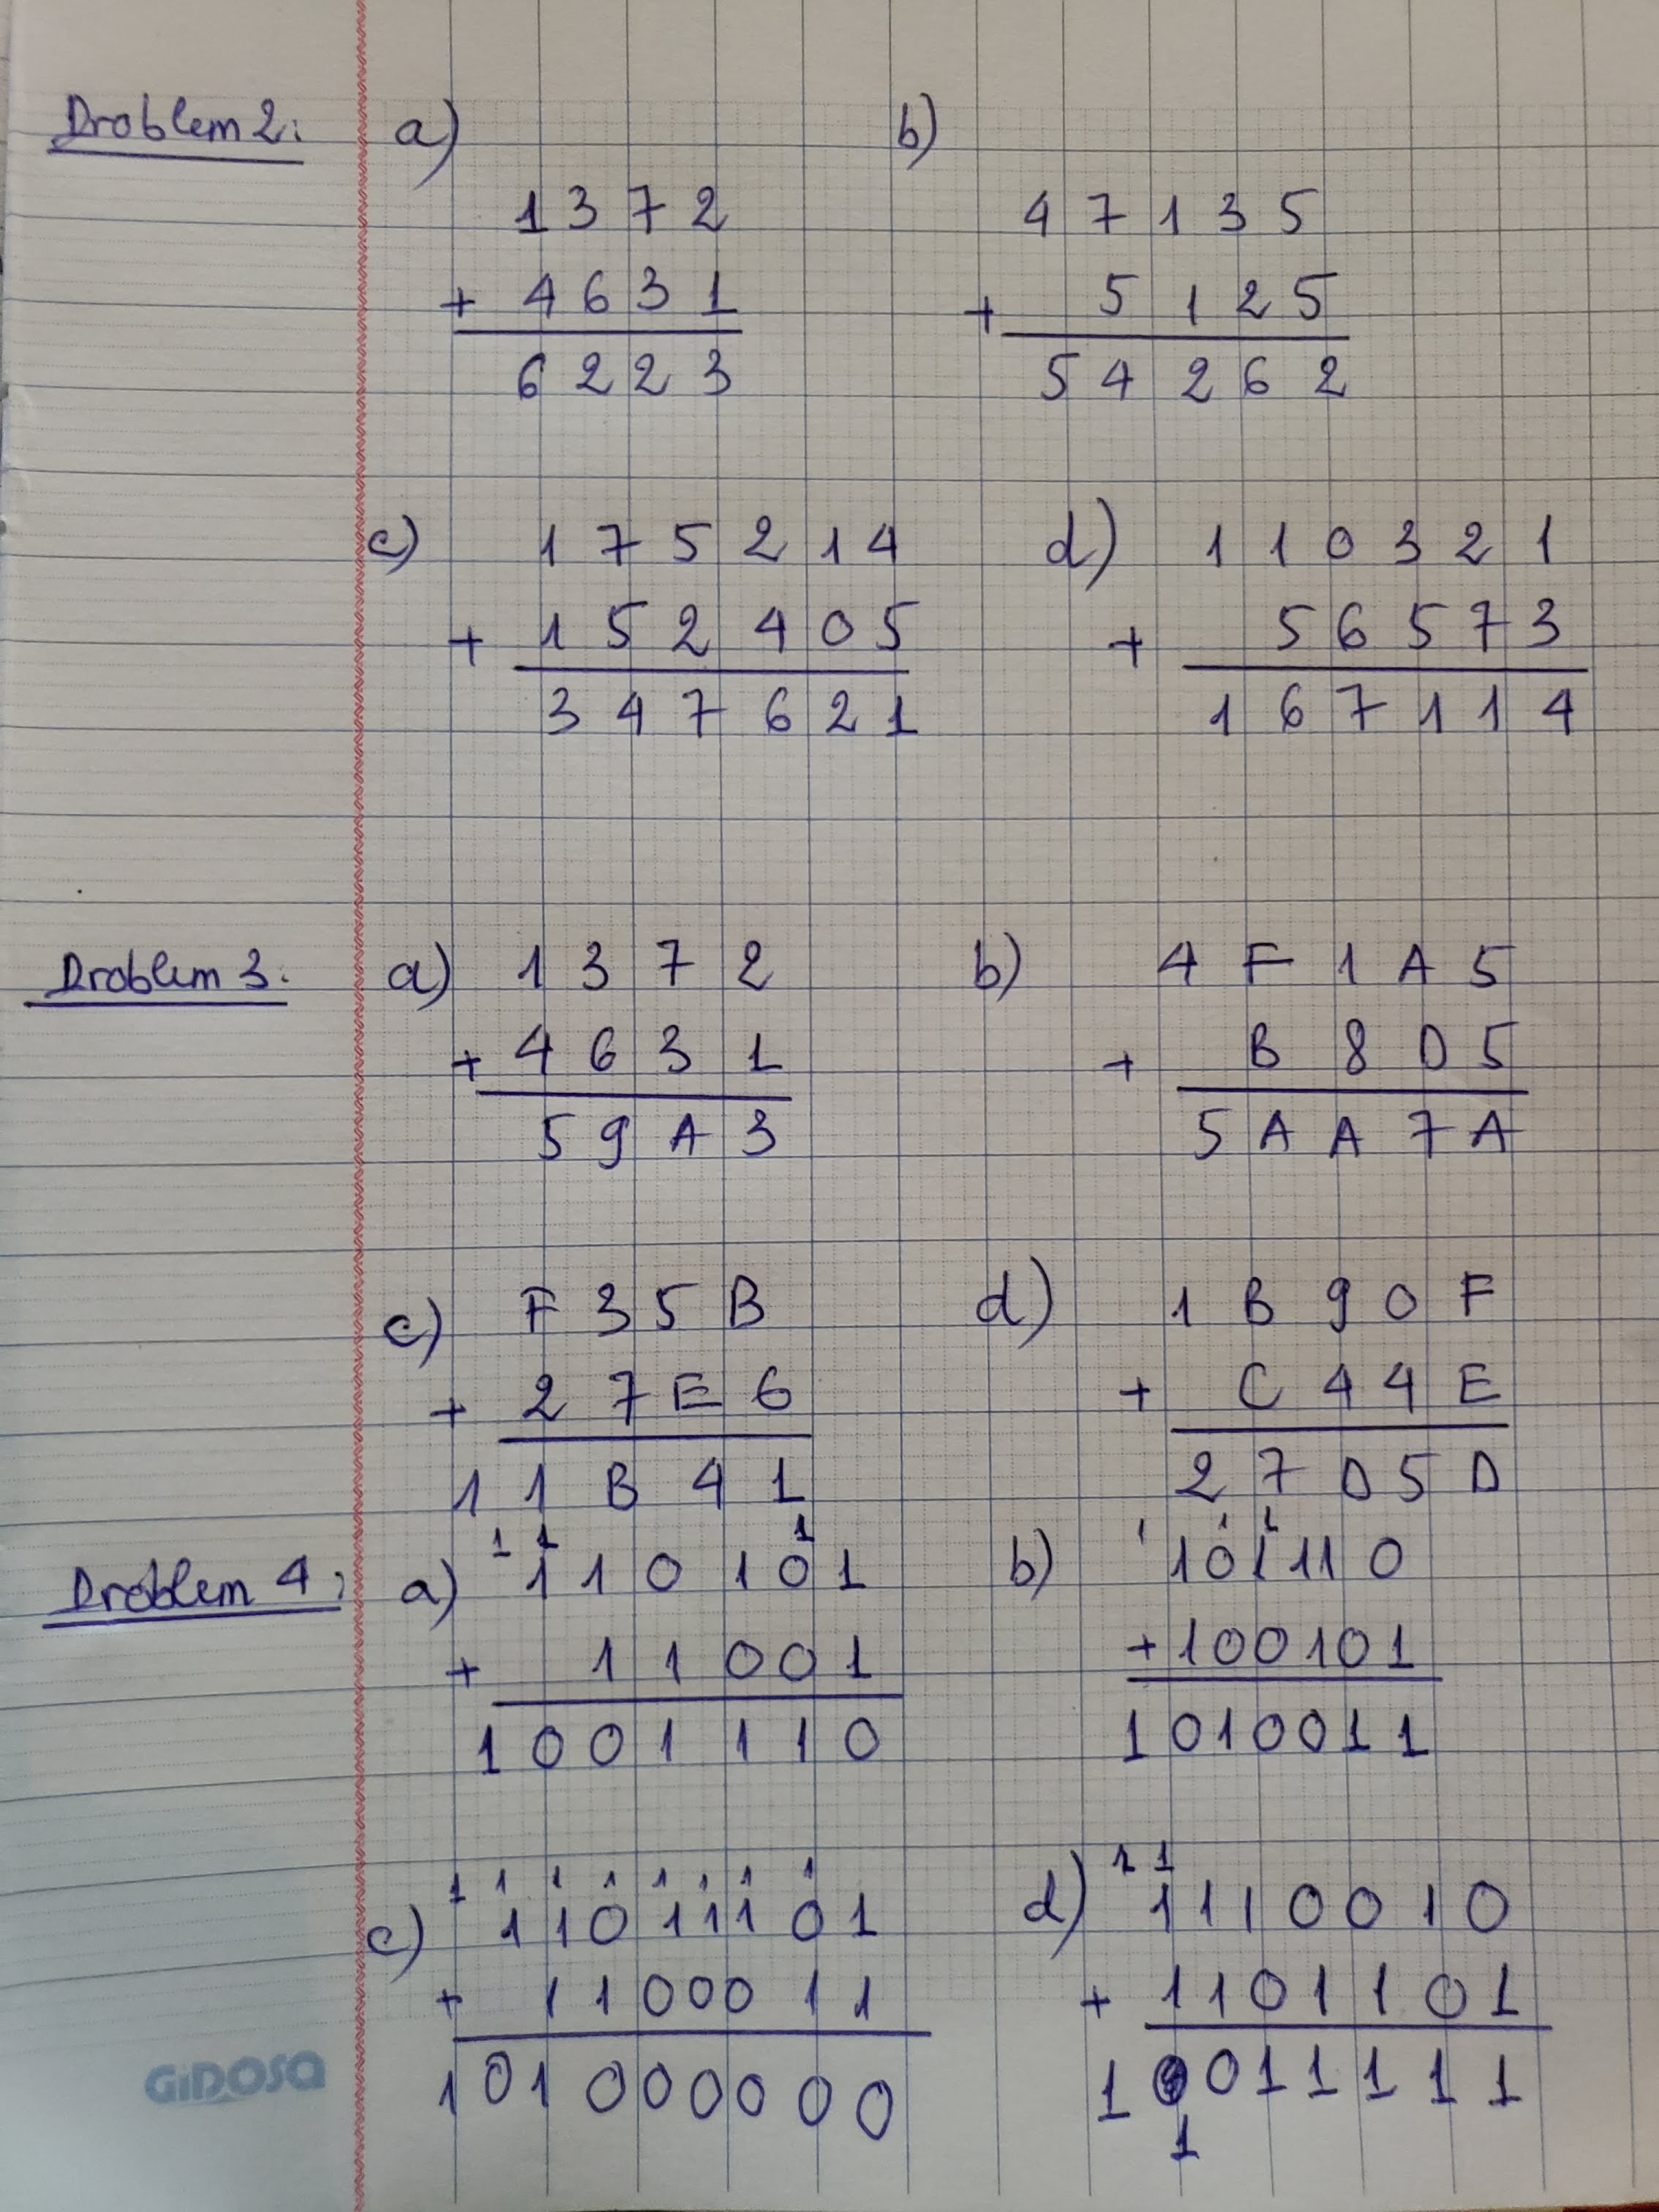 Problem 2: a) b)
1 3 7 2
+ 4 6 3 1
6 2 2 3
4 7 1 3 5
+ 5 1 2 5
5 4 2 6 2
c) 1 7 5 2 1 4
+ 1 5 2 4 0 5
3 4 7 6 2 1
d) 1 1 0 3 2 1
+ 5 6 5 7 3
1 6 7 1 1 4
Problem 3. a) 1 3 7 2
+ 4 6 3 1
5 9 A 3
b) 4 F 1 A 5
+ B 8 D 5
5 A A 7 A
c) F 3 5 B
+ 2 7 E 6
1 1 B 4 1
d) 1 B 9 0 F
+ C 4 4 E
2 7 D 5 D
1 1 1
Problem 4: a) 1 1 0 1 0 1
+ 1 1 0 0 1
1 0 0 1 1 1 0
1 1 1
b) 1 0 1 1 1 0
+ 1 0 0 1 0 1
1 0 1 0 0 1 1
1 1 1 1 1 1 1 1
c) 1 1 0 1 1 1 0 1
+ 1 1 0 0 0 1 1
1 0 1 0 0 0 0 0 0
1 1
d) 1 1 1 0 0 1 0
+ 1 1 0 1 1 0 1
1 0 1 1 1 1 1
1
GIDOSA